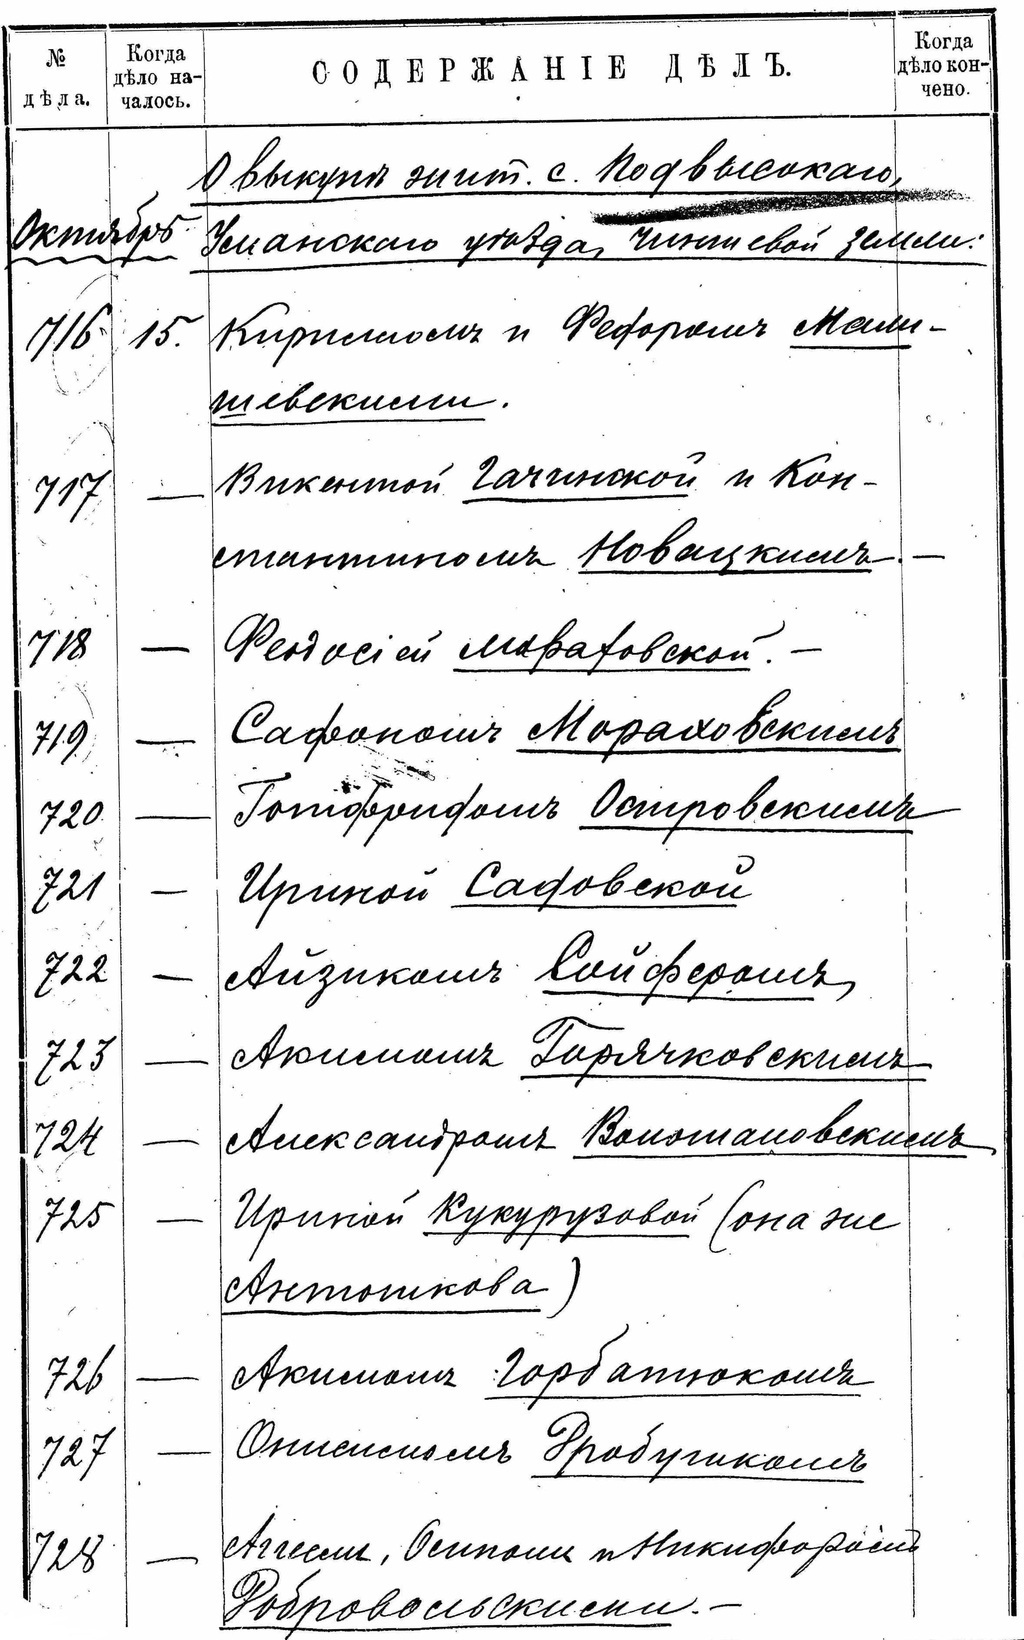 № дѣла. Когда дѣло на- чалось. СОДЕРЖАНІЕ ДѢЛЪ. Когда дѣло кон- чено.
О выкупѣ жит. с. Подвысокаго,
Октябрь. Уманскаго уѣзда, чиншевой земли:
716 15. Кирилломъ и Федоромъ Мали-
шевскими.
717 — Викентой Гачинской и Кон-
стантиномъ Новацкимъ. —
718 — Феодосіей Мораховской. —
719 — Сафономъ Мораховскимъ
720 — Готфридомъ Островскимъ
721 — Ириной Садовской
722 — Айзикомъ Сойферомъ,
723 — Акимомъ Горячковскимъ
724 — Александромъ
725 — Ириной Кукурузовой (она же
Антошкова)
726 — Акимомъ Горбатюкомъ
727 — Онисимомъ
728 — Осипомъ и Никифоромъ
Добровольскими. —